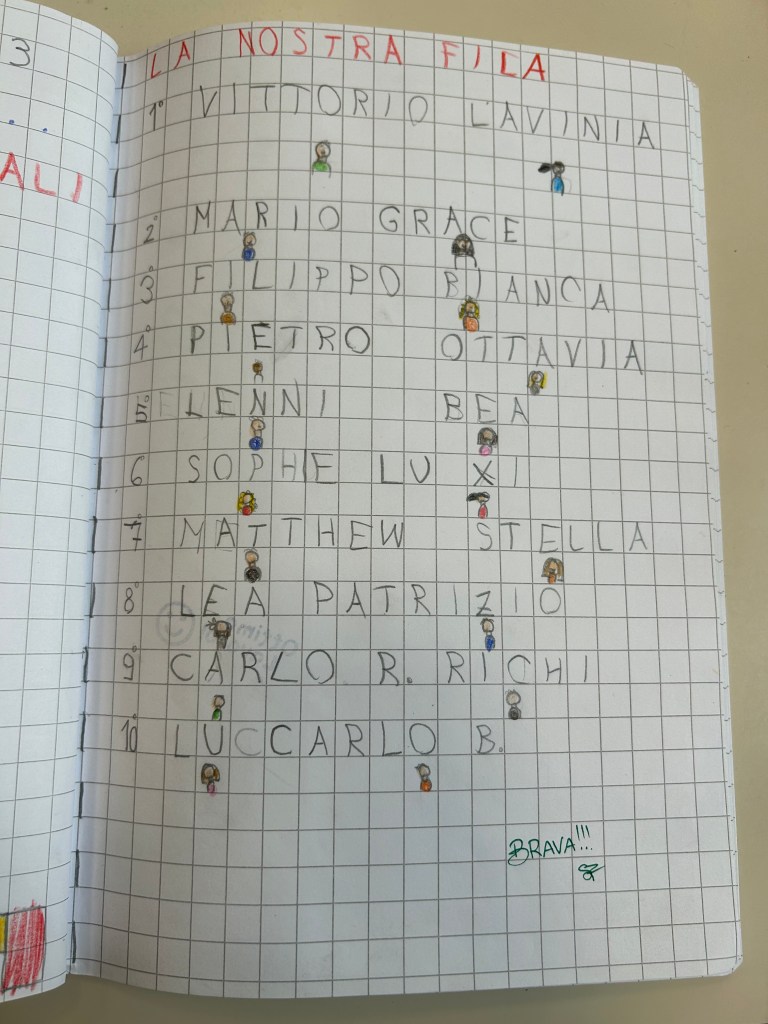 3
ALI
LA NOSTRA FILA
1° VITTORIO LAVINIA
2° MARIO GRACE
3° FILIPPO BIANCA
4° PIETRO OTTAVIA
5° LENNI BEA
6 SOPHE LU XI
7° MATTHEW STELLA
8° LEA PATRIZIO
9° CARLO R. RICHI
10° LUCCARLO B.
BRAVA!!!